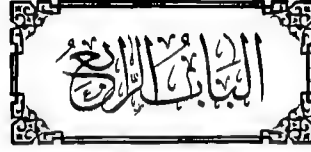 البَابُ الرَّابِعُ